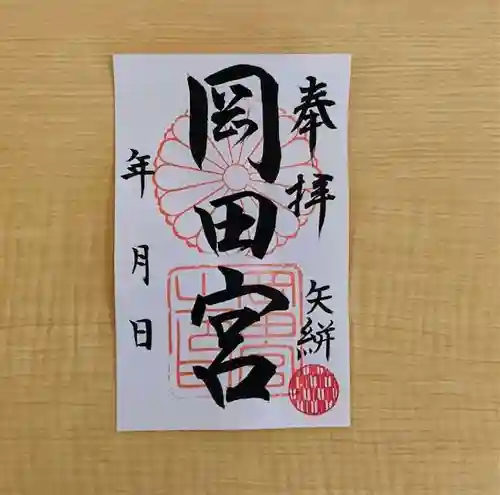 奉拝
矢絣
岡田宮
年月日